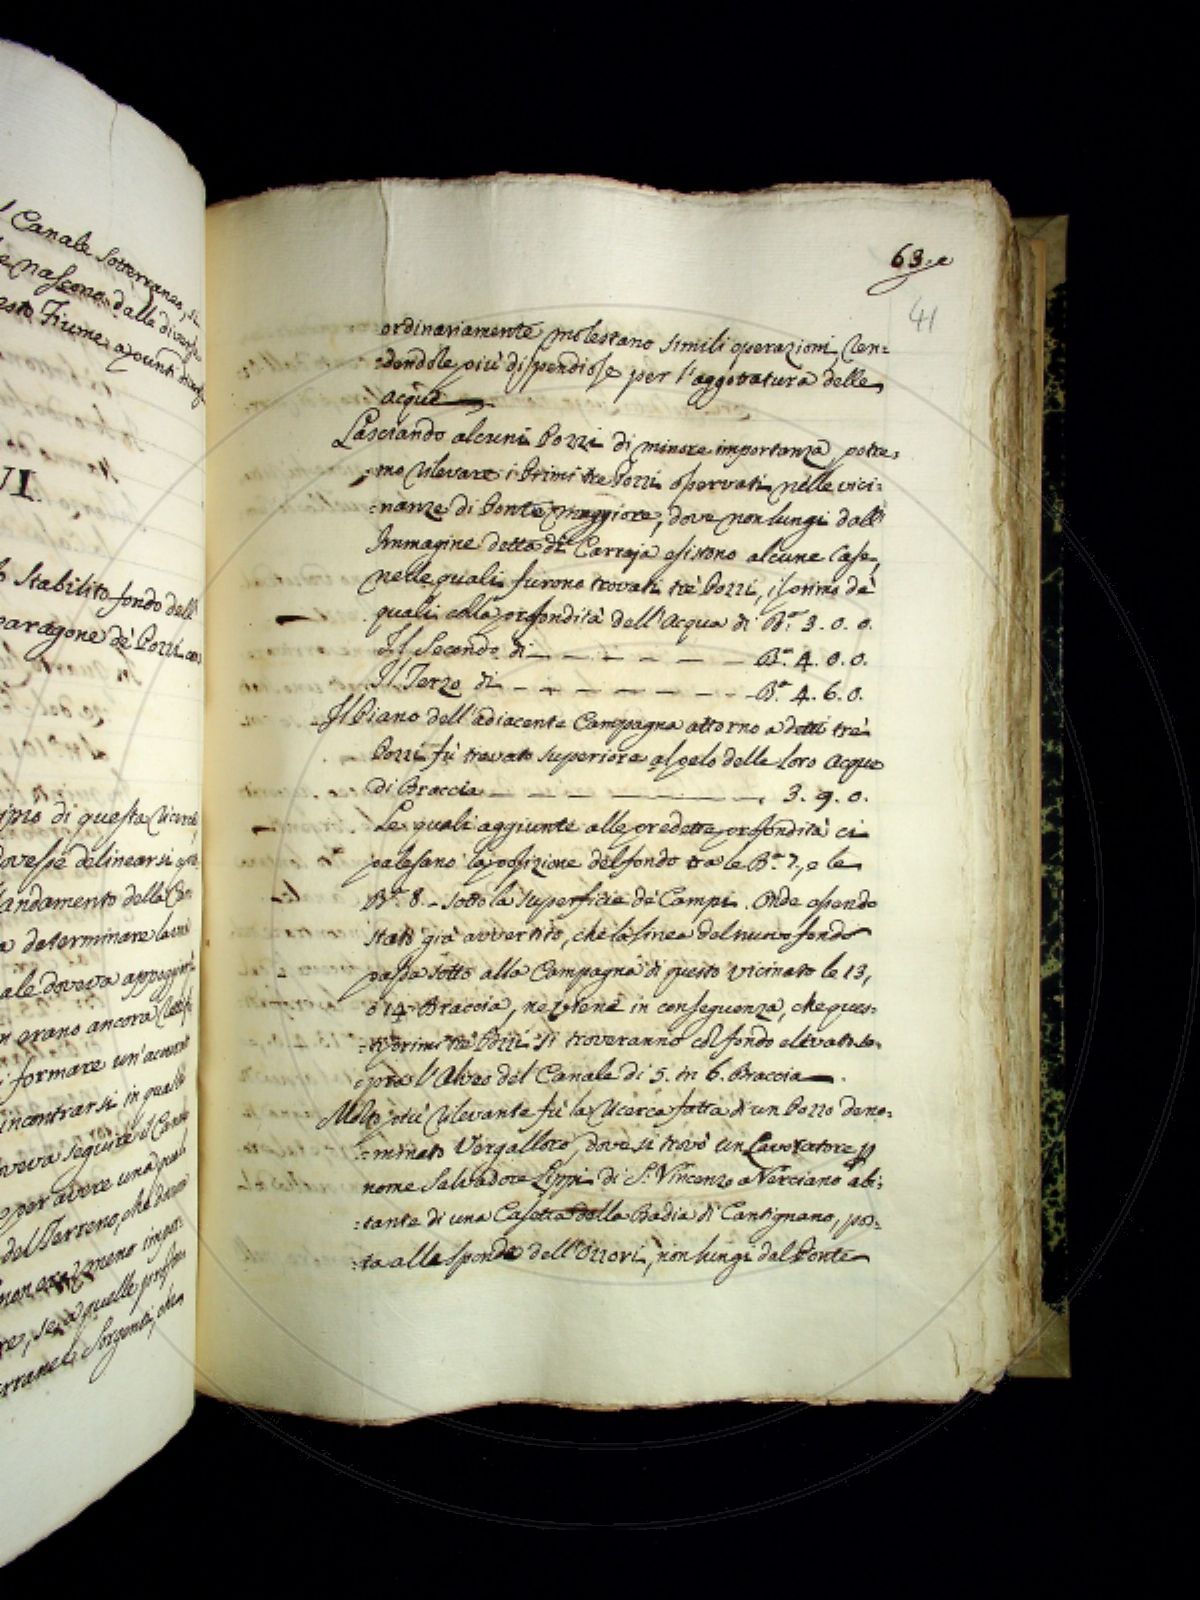 l Canale sotterraneo, si
e nascono dalle diverse
esto Fiume a punti di
VI.
o stabilito fondo dell'
paragone de' Pozzi
ipio di questa ricerca
dovesse delinearsi
l'andamento della
a determinare la
ale doveva appoggiarsi
n erano ancora
i formare un'
incontrarsi in quall
veva seguire il Canale
e per avere una qual
del Terreno, che dava
non era meno impor:
re, se a quelle profon
erranee Sorgenti, che
63.
41
ordinariamente molestano simili operazioni, ren=
=dendole più dispendiose per l'aggottatura delle
acque.
Lasciando alcuni Pozzi di minore importanza, potre=
=mo rilevare i primi tre Pozzi osservati nelle vici=
=nanze di Ponte maggiore, dove non lungi dall'
Immagine detta di Carraja esistono alcune Case,
nelle quali furono trovati tre Pozzi, il primo de'
quali colla profondità dell'Acqua di Bª. 3. 0. 0.
Il Secondo di – – – – – – – Bª. 4. 0. 0.
Il Terzo di – – – – – – – – Bª. 4. 6. 0.
Il Piano dell'adiacente Campagna attorno a detti trè
Pozzi fù trovato superiore al pelo delle loro Acque
di Braccia – – – – – – 3. 9. 0.
Le quali aggiunte alle predette profondità ci
palesano la posizione del fondo tra le Bª. 7., e le
Bª. 8. – sotto la superficie de' Campi. Onde essendo
stato già avvertito, che la linea del nuovo fondo
passa sotto alla Campagna di questo vicinato le 13,
o 14 Braccia, ne viene in conseguenza, che ques=
=ti primi trè Pozzi si troveranno col fondo elevato so=
=pra l'Alveo del Canale di 5. in 6. Braccia.
Molto più rilevante fù la ricerca fatta di un Pozzo deno=
=minato Vergalloro, dove si trovò un Lavoratore p
nome Salvadore Lippi di S. Vincenzo a Verciano abi=
=tante di una Casetta della Badia di Cantignano, pos=
=ta alla sponda dell'Ozzori, non lungi dal Ponte